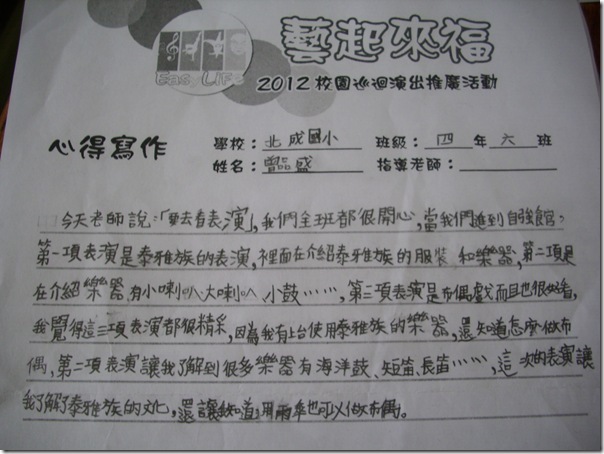 Easy LIFE
藝起來福
2012校園巡迴演出推廣活動
心得寫作
學校：北成國小 班級：四年六班
姓名：曾品盛 指導老師：
今天老師說：「要去看表演」，我們全班都很開心，當我們進到自強館，
第一項表演是泰雅族的表演，裡面在介紹泰雅族的服裝和樂器，第二項是
在介紹樂器有小喇叭、大喇叭、小鼓……，第三項表演是布偶戲而且也很好看，
我覺得這三項表演都很精采，因為我有上台使用泰雅族的樂器，還知道怎麼做布
偶，第二項表演讓我了解到很多樂器有海洋鼓、短笛、長笛……，這次的表演讓
我了解了泰雅族的文化，還讓我知道用雨傘也可以做布偶。